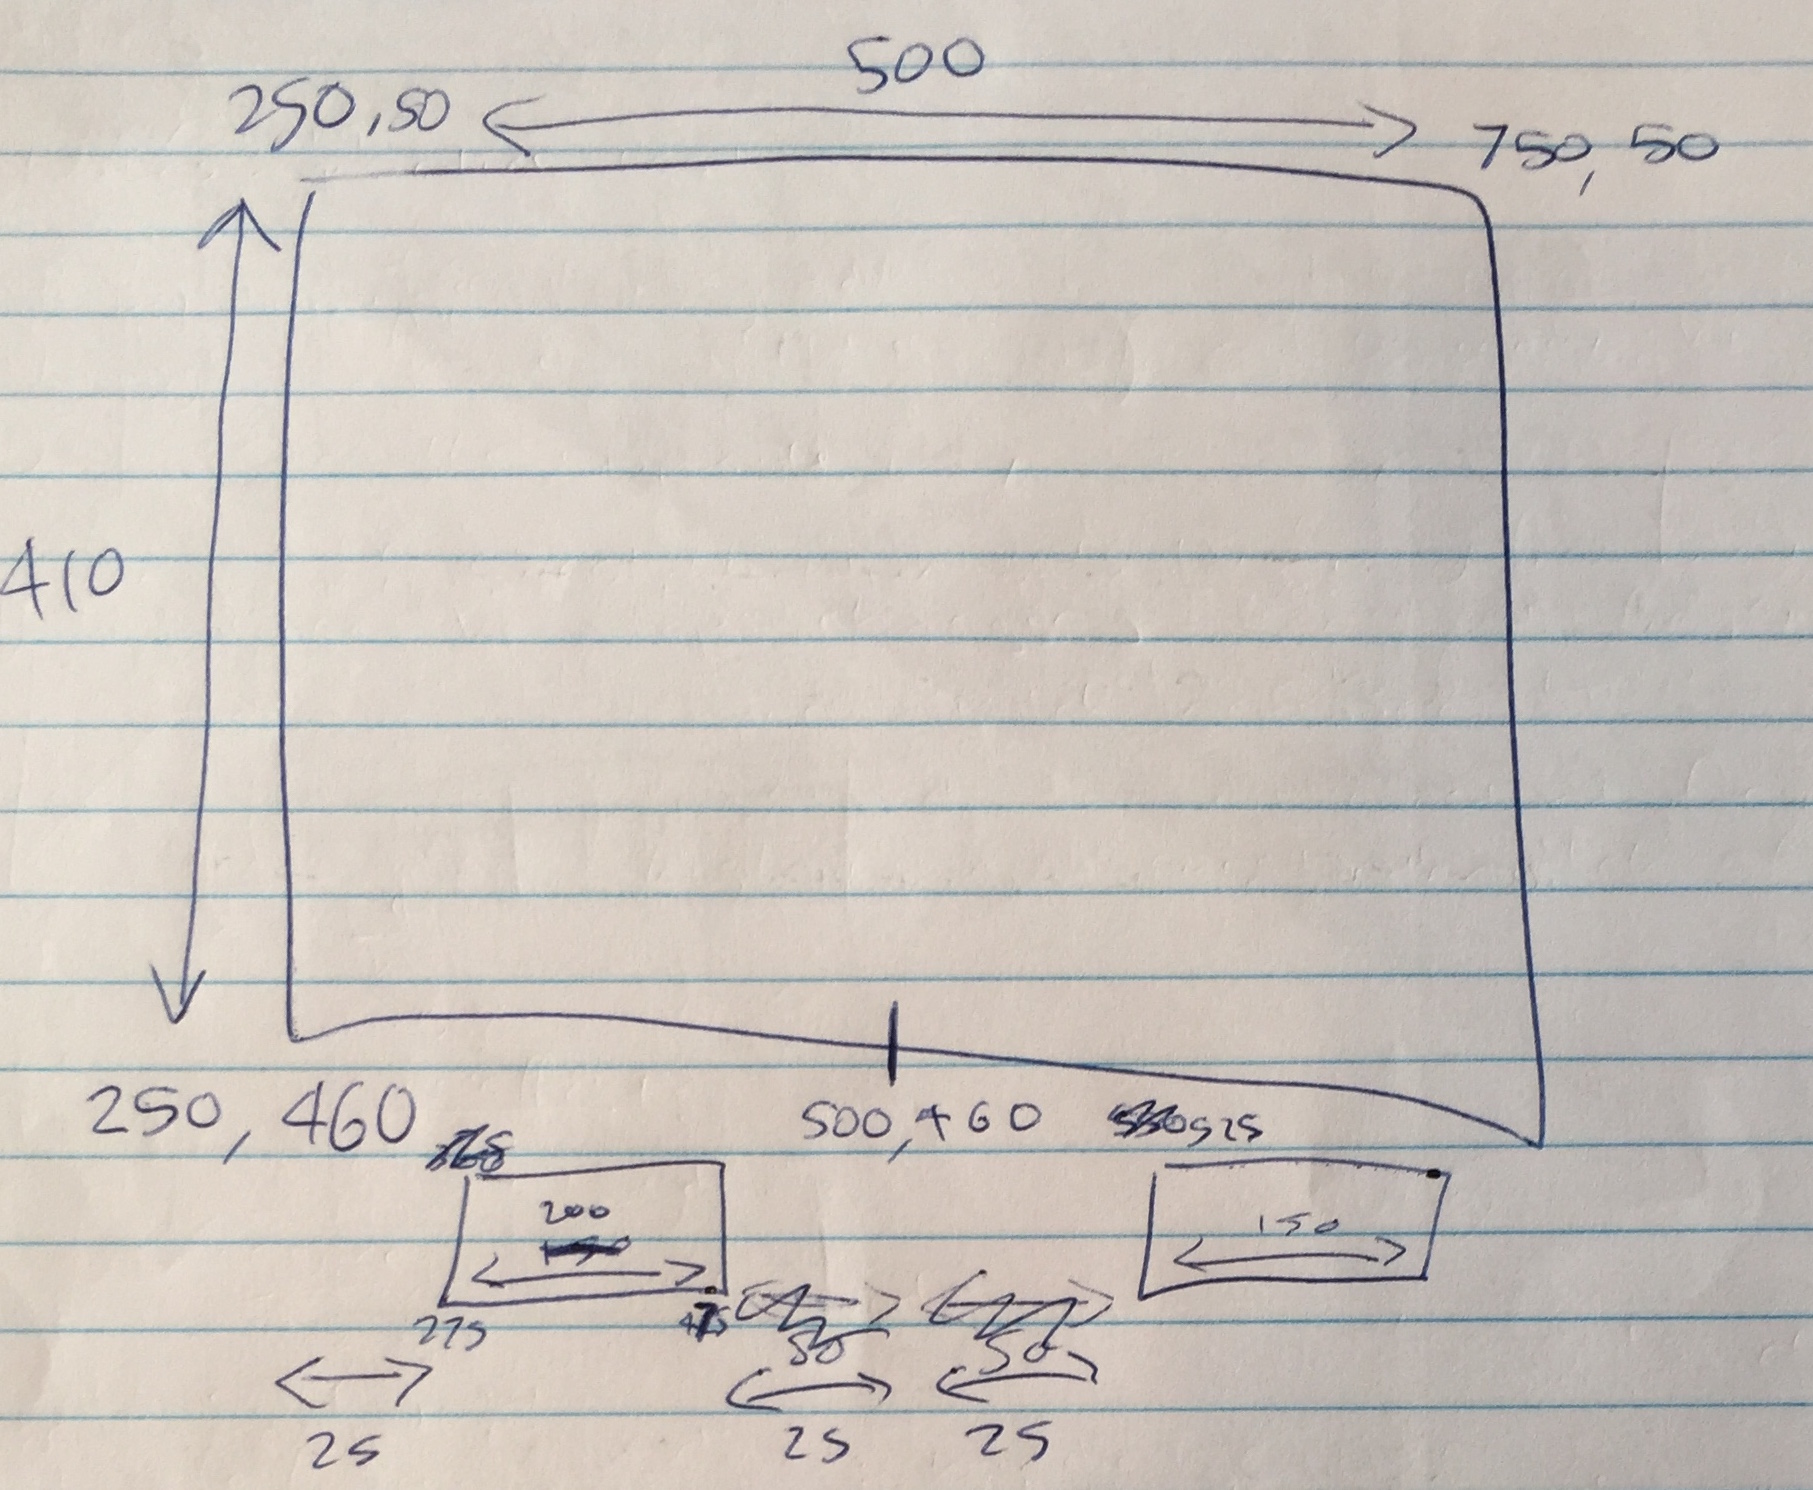 500
250,50
750, 50
410
250, 460
500,460
525
200
150
275
475
50
50
25
25
25